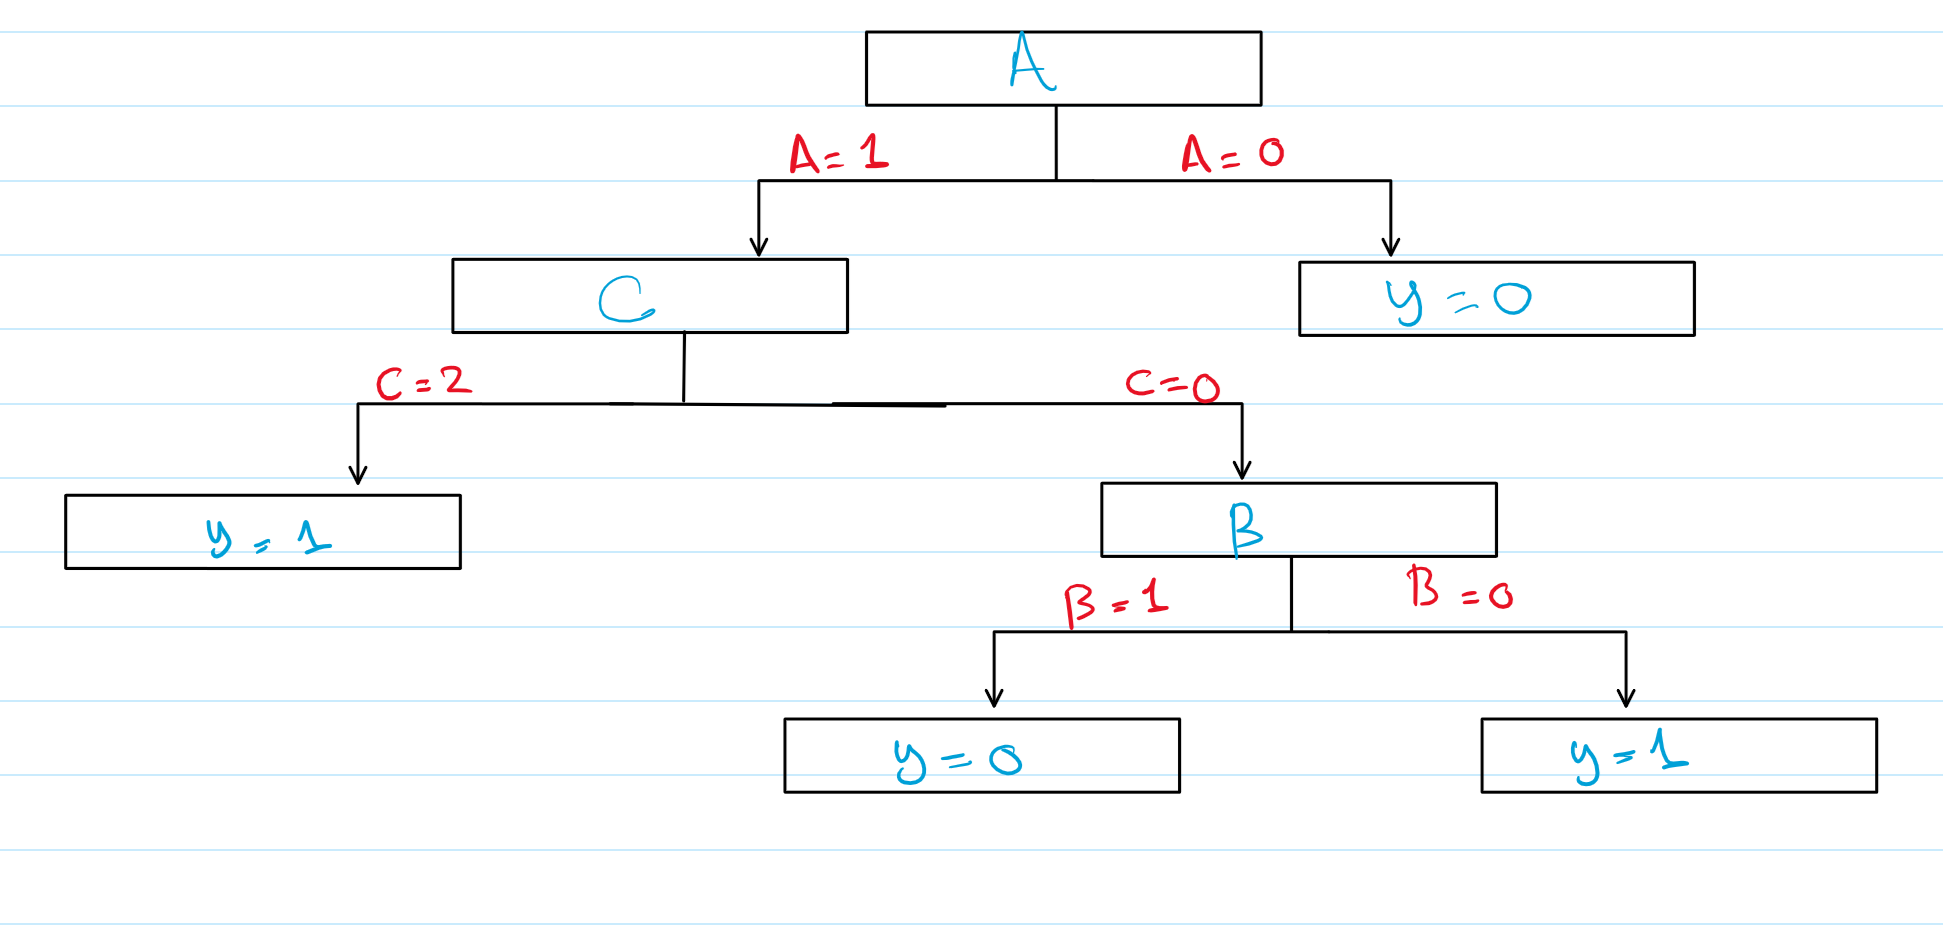 A
A = 1
A = 0
C
y = 0
C = 2
C = 0
y = 1
B
B = 1
B = 0
y = 0
y = 1